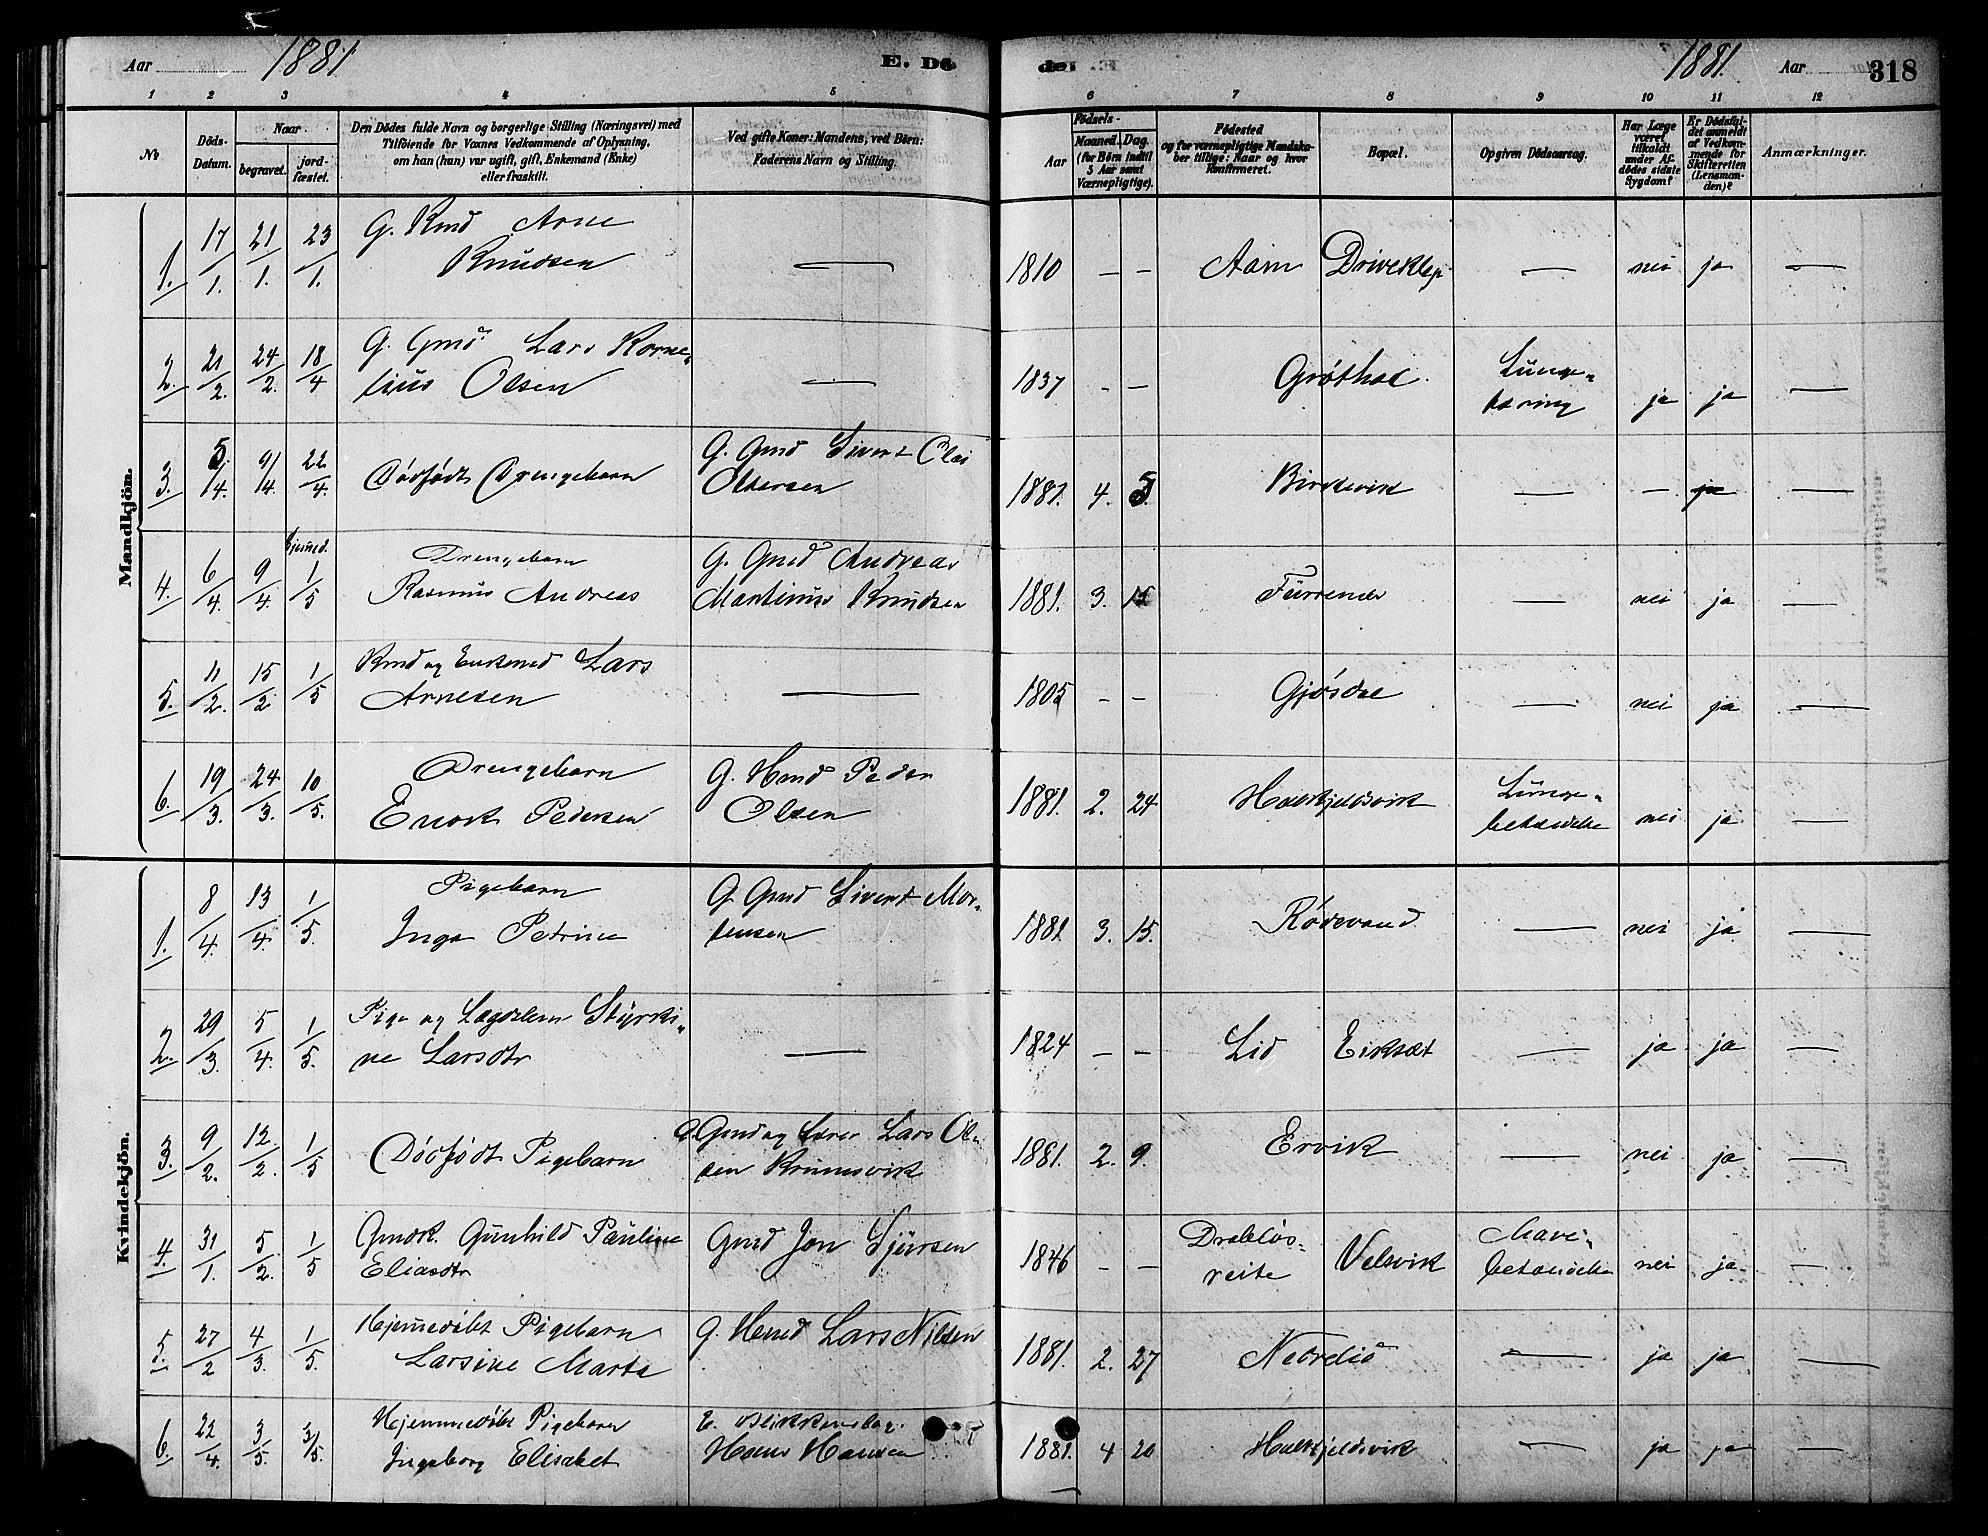 Aar 1881 E. Dö
de: 1881. Aar 318
1 2 3 4 5 6 7 8 9 10 11 12
No
Döds-Datum.
Naar
begravet.
jord-fæstet.
Den Dödes fulde Navn og borgerlige Stilling (Næringsvei) med
Tilföiende for Voxnes Vedkommende af Oplysning,
om han (hun) var ugift, gift, Enkemand (Enke)
eller fraskilt.
Ved gifte Koner: Mandens, ved Börn:
Faderens Navn og Stilling.
Födsels-
Aar
Maaned. Dag.
(for Börn indtil
5 Aar samt
Værnepligtige).
Födested
og for værnepligtige Mandska-
ber tillige: Naar og hvor
Konfirmeret.
Bopæl.
Opgiven Dödsaarsag.
Har Læge
været
tilkaldt
under Af-
dödes sidste
Sygdom?
Er Dödsfal-
det anmeldt
af Vedkom-
mende for
Skifteretten
(Lensman-
den)?
Anmærkninger.
Mandkjön.
1. 17/1. 21/1. 23/1. G. Kmd Arne
Knudsen — 1810 — — Aam Driveklep — nei ja —
2. 21/2. 24/2. 18/4 G. Gmd Lars Korne-
lius Olsen — 1837 — — Gróthol. Lunge-
tæring ja ja —
3. 5/4. 9/4. 22/4. Dódfódt Drengebarn G. Gmd Sivert Olai
Oltersen 1881. 4. 5. Birkevik — — ja
4. 6/4. 9/4. hjemmed. 1/5 Drengebarn
Rasmus Andreas G. Gmd Andreas
Martinus Knudsen 1881. 3. 15 Furrenes — nei ja —
5. 11/2. 15/2 1/5 Kmd og Enkemd Lars
Arnesen — 1805 — — Gjósdal — nei ja —
6. 19/3. 24/3. 10/5. Drengebarn
Enok Pedersen G. Hmd Peder
Olsen 1881. 2. 24 Halkjeldsvik Lunge-
betændelse nei ja —
Kvindekjön.
1. 8/4. 13/4. 1/5. Pigebarn
Inga Petrine G. Gmd Sivert Mor-
tensen 1881 3. 15. Ródevand — nei ja —
2. 29/3. 5/4. 1/5. Pige og Lægdslem Styrki-
ne Larsdtr — 1824 — — Lid Eiksæt — ja ja —
3. 9/2. 12/2. 1/5 Dódfódt Pigebarn G. Gmd og Lærer Lars Ol-
sen Krumsvik 1881. 2. 9. Ervik — nei ja —
4. 31/1. 5/2. 1/5 Gmdk. Gunhild Pauline
Eliasdtr Gmd Jon Sjursen 1846 — — Drabløs-
reite Velsvik Mave-
betændelse nei ja —
5. 27/2 4/3. 1/5. Hjemmedóbt Pigebarn
Larsine Marta G. Hmd Lars Nilsen 1881. 2. 27 Nedrelid — ja ja —
6. 22/4. 3/5. 3/5. Hjemmedóbt Pigebarn
Ingeborg Elisabet E. Blikkenslag.
Hans Hansen 1881. 4 20 Halkjeldsvik — ja ja —